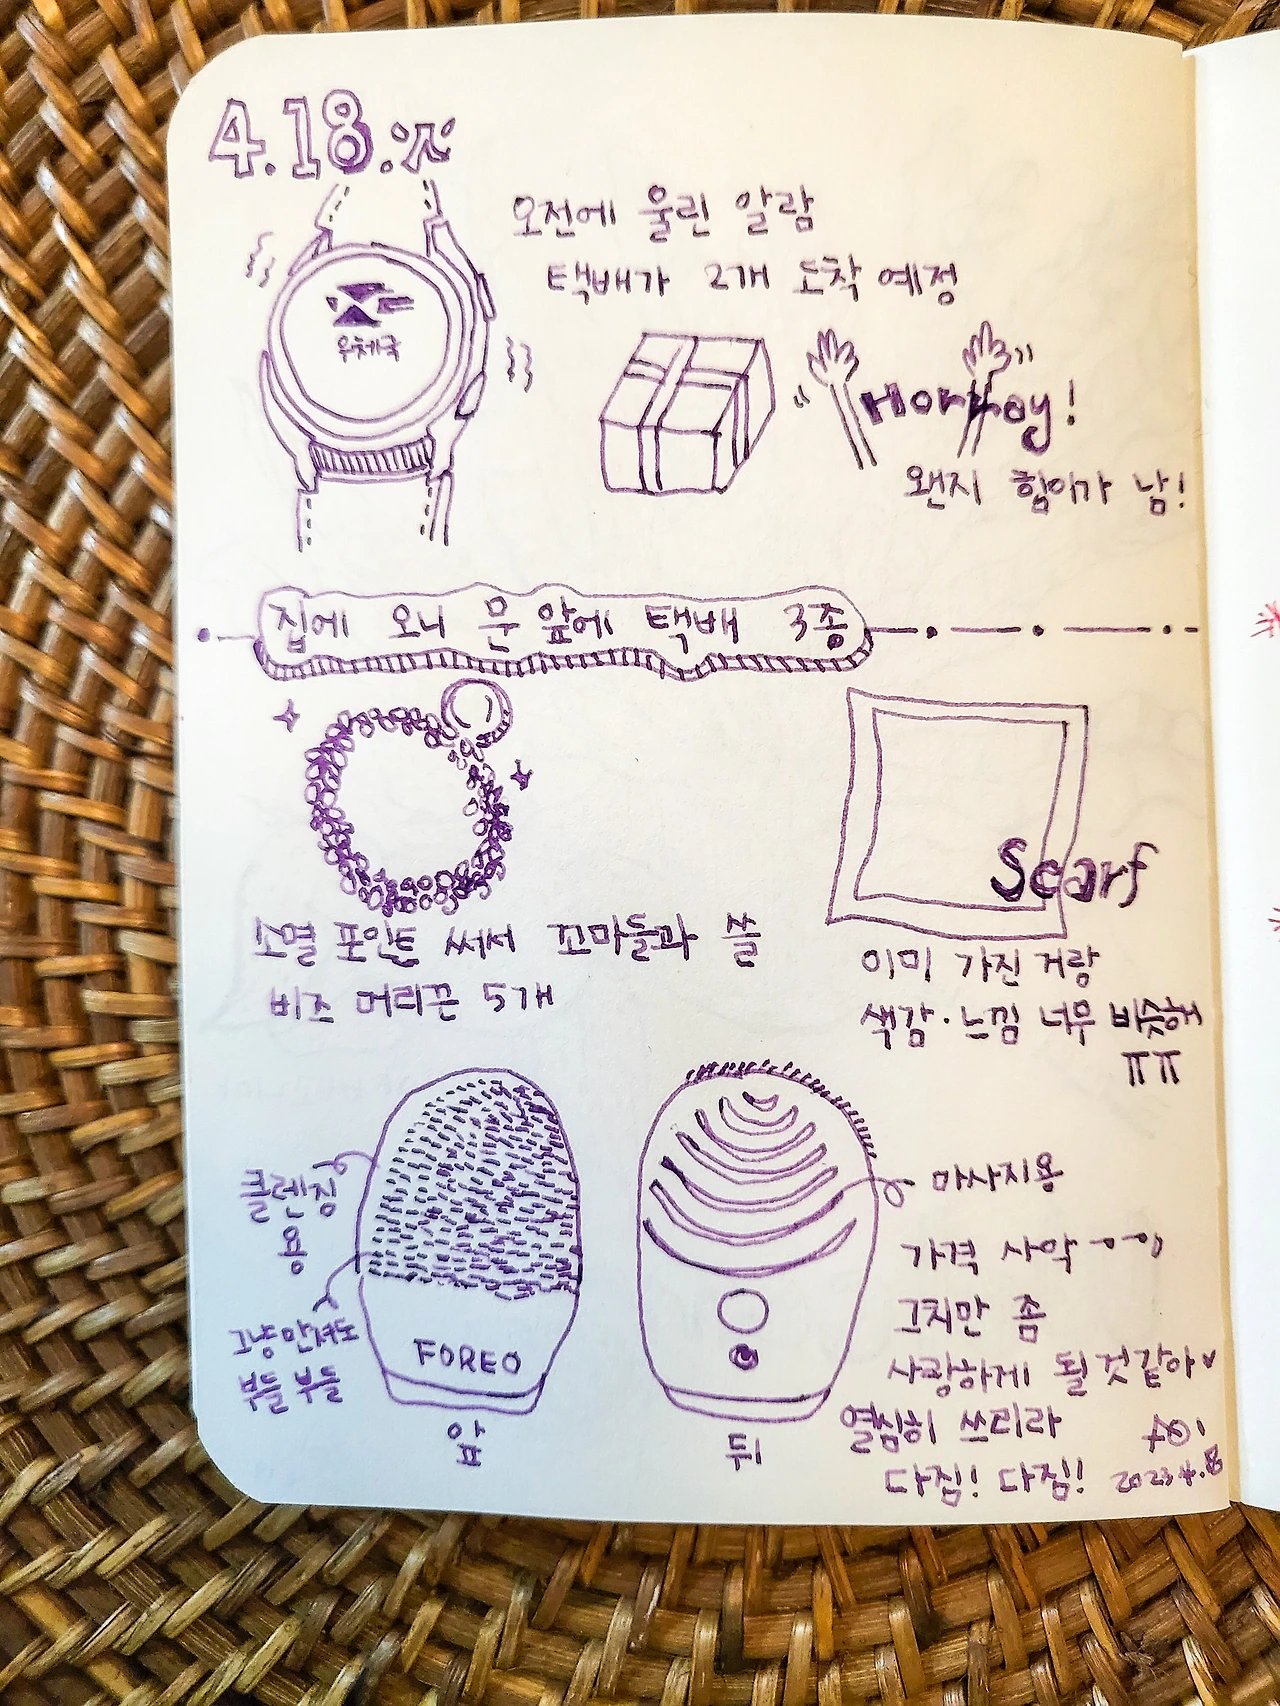 4.18.火
오전에 울린 알람
택배가 2개 도착 예정
우체국
Horray!
왠지 힘이가 남!
집에 오니 문 앞에 택배 3종
소멸 포인트 써서 꼬마들과 쓸
비즈 머리끈 5개
Scarf
이미 가진 거랑
색감·느낌 너무 비슷해
ㅠㅠ
클렌징
용
그냥 만져도
부들부들
FOREO
앞
뒤
마사지용
가격 사악
그치만 좀
사랑하게 될 것 같아♥
열심히 쓰리라
다짐! 다짐!
2023.4.18